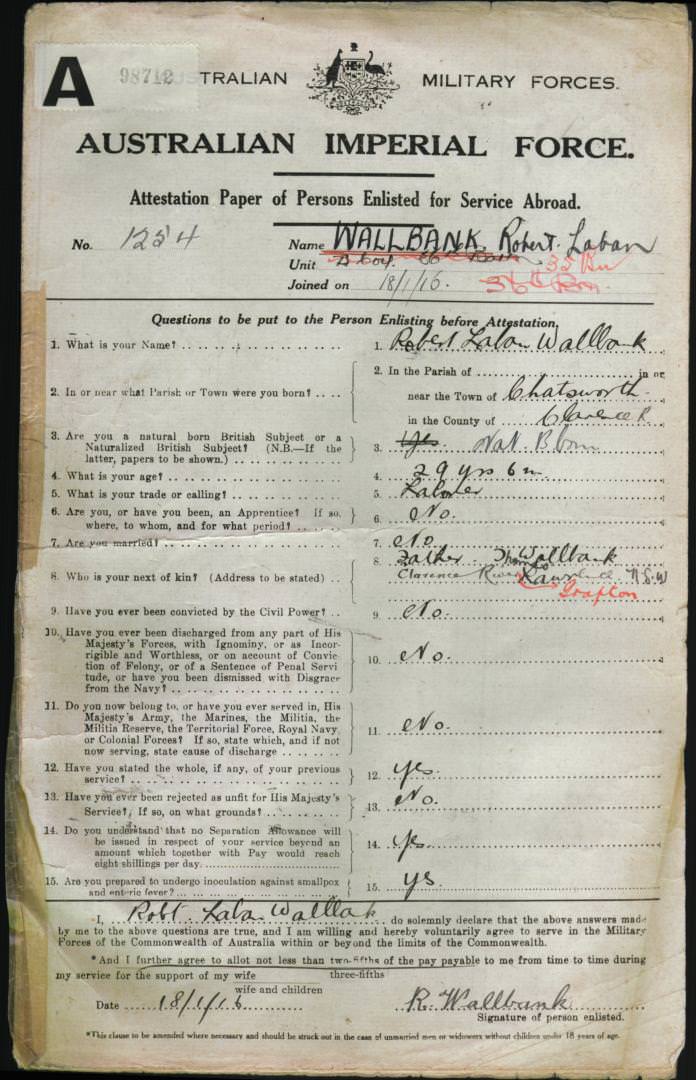 A 98712 AUSTRALIAN MILITARY FORCES.
AUSTRALIAN IMPERIAL FORCE.
Attestation Paper of Persons Enlisted for Service Abroad.
No. 1254 Name WALLBANK, Robert Laban
Unit D Coy. 36 Battn 35 Bn
Joined on 18/1/16. 36th Bn.
Questions to be put to the Person Enlisting before Attestation.
1. What is your Name? 1. Robert Laban Wallbank
2. In or near what Parish or Town were you born? 2. In the Parish of in or
near the Town of Chatsworth
in the County of Clarence R.
3. Are you a natural born British Subject or a
Naturalized British Subject? (N.B.—If the
latter, papers to be shown.) 3. Yes Nat. B born
4. What is your age? 4. 29 yrs 6 m
5. What is your trade or calling? 5. Laborer
6. Are you, or have you been, an Apprentice? If so,
where, to whom, and for what period? 6. No.
7. Are you married? 7. No
8. Who is your next of kin? (Address to be stated) 8. Father Thos Wallbank
Clarence River Lawrence N.S.W
Grafton
9. Have you ever been convicted by the Civil Power? 9. No.
10. Have you ever been discharged from any part of His
Majesty's Forces, with Ignominy, or as Incor-
rigible and Worthless, or on account of Convic-
tion of Felony, or of a Sentence of Penal Servi
tude, or have you been dismissed with Disgrace
from the Navy? 10. No.
11. Do you now belong to, or have you ever served in, His
Majesty's Army, the Marines, the Militia, the
Militia Reserve, the Territorial Force, Royal Navy
or Colonial Forces? If so, state which, and if not
now serving, state cause of discharge 11. No.
12. Have you stated the whole, if any, of your previous
service? 12. yes.
13. Have you ever been rejected as unfit for His Majesty's
Service? If so, on what grounds? 13. No.
14. Do you understand that no Separation Allowance will
be issued in respect of your service beyond an
amount which together with Pay would reach
eight shillings per day. 14. yes.
15. Are you prepared to undergo inoculation against smallpox
and enteric fever? 15. yes
I, Robt. Laban Wallbank do solemnly declare that the above answers made
by me to the above questions are true, and I am willing and hereby voluntarily agree to serve in the Military
Forces of the Commonwealth of Australia within or beyond the limits of the Commonwealth.
*And I further agree to allot not less than two-fifths of the pay payable to me from time to time during
my service for the support of my wife three-fifths
wife and children
Date 18/1/16 R. Wallbank
Signature of person enlisted.
*This clause to be amended where necessary and should be struck out in the case of unmarried men or widowers without children under 18 years of age.